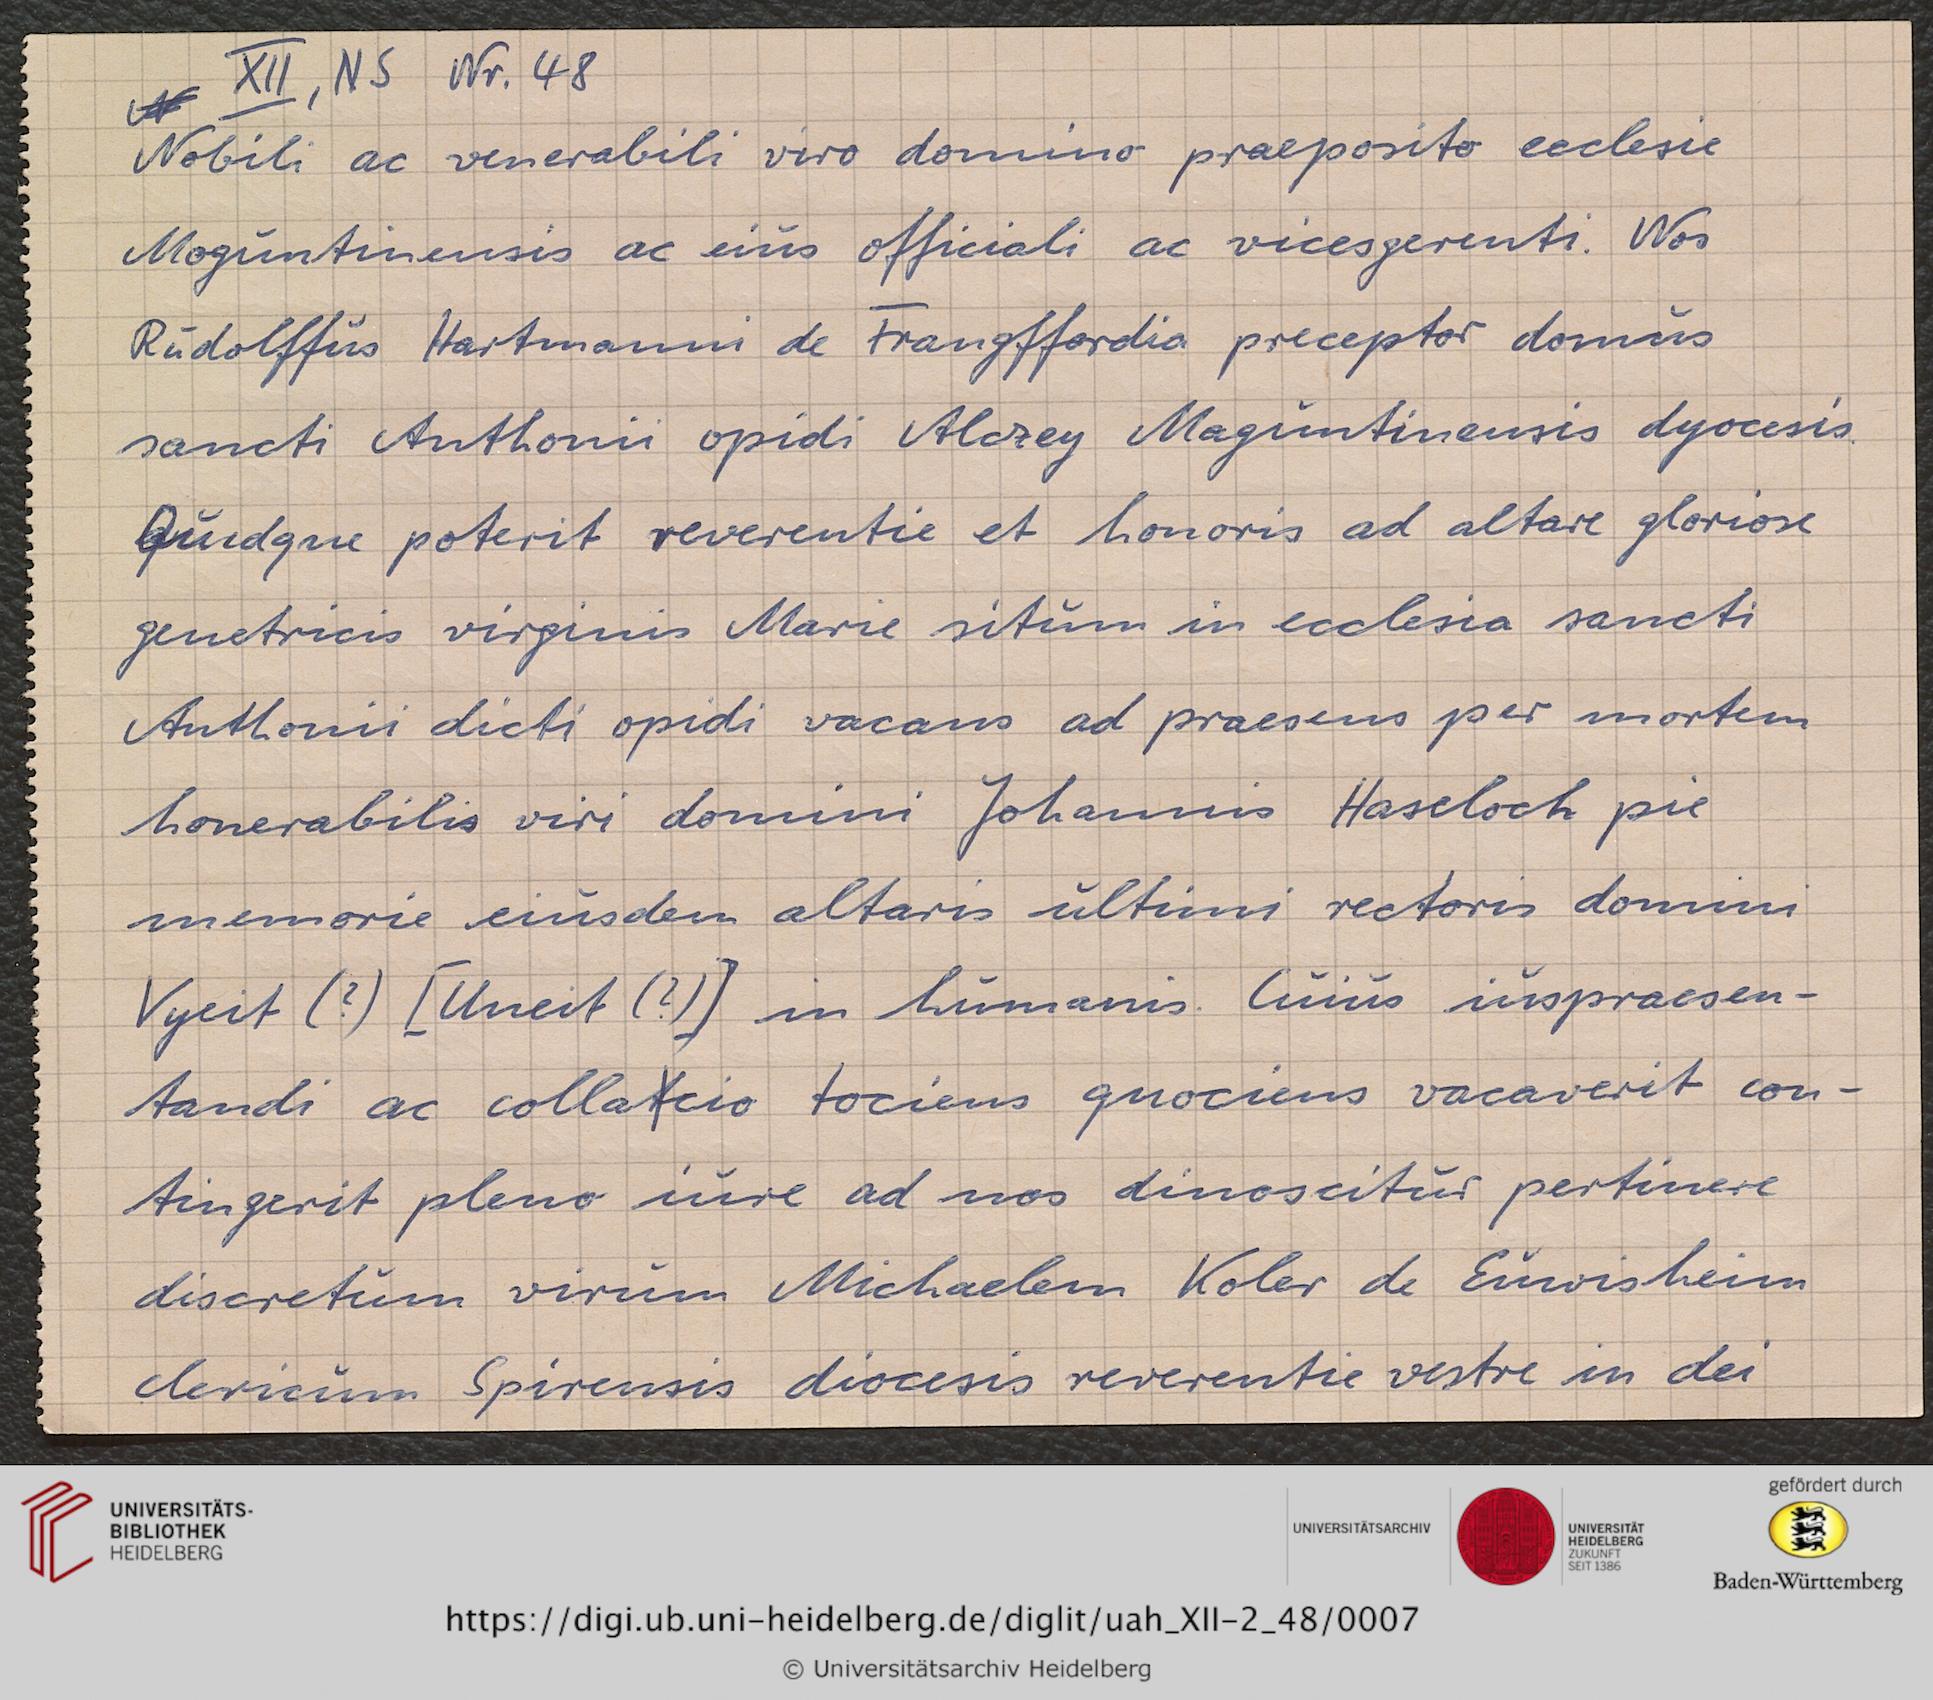 XII, NS Nr. 48
Nobili ac venerabili viro domino praeposito ecclesie
Moguntinensis ac eius officiali ac vicesgerenti. Nos
Rudolffus Hartmanni de Frangffordia preceptor domus
sancti Anthonii opidi Alczey Maguntinensis dyocesis.
Quidque poterit reverentie et honoris ad altare gloriose
genetricis virginis Marie situm in ecclesia sancti
Anthonii dicti opidi vacans ad praesens per mortem
honerabilis viri domini Johannis Haseloch pie
memorie eiusdem altaris ultimi rectoris domini
Vyeit (?) [Uneit (?)] in humanis. Cuius iuspraesen-
tandi ac collacio tociens quociens vacaverit con-
tingerit pleno iure ad nos dinoscitur pertinere
discretum virum Michaelem Koler de Euwisheim
clericum Spirensis diocesis reverentie vestre in dei
UNIVERSITÄTS-
BIBLIOTHEK
HEIDELBERG
UNIVERSITÄTSARCHIV
UNIVERSITÄT
HEIDELBERG
ZUKUNFT
SEIT 1386
gefördert durch
Baden-Württemberg
https://digi.ub.uni-heidelberg.de/diglit/uah_XII-2_48/0007
© Universitätsarchiv Heidelberg